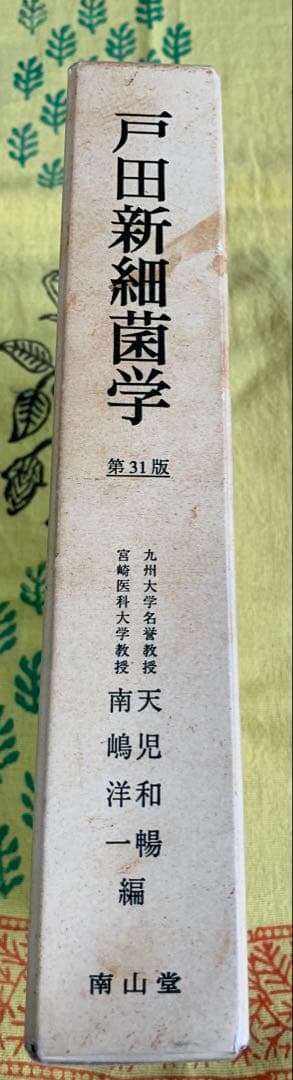 戸田新細菌学
第31版
九州大学名誉教授 天児和暢
宮崎医科大学教授 南嶋洋一
編
南山堂